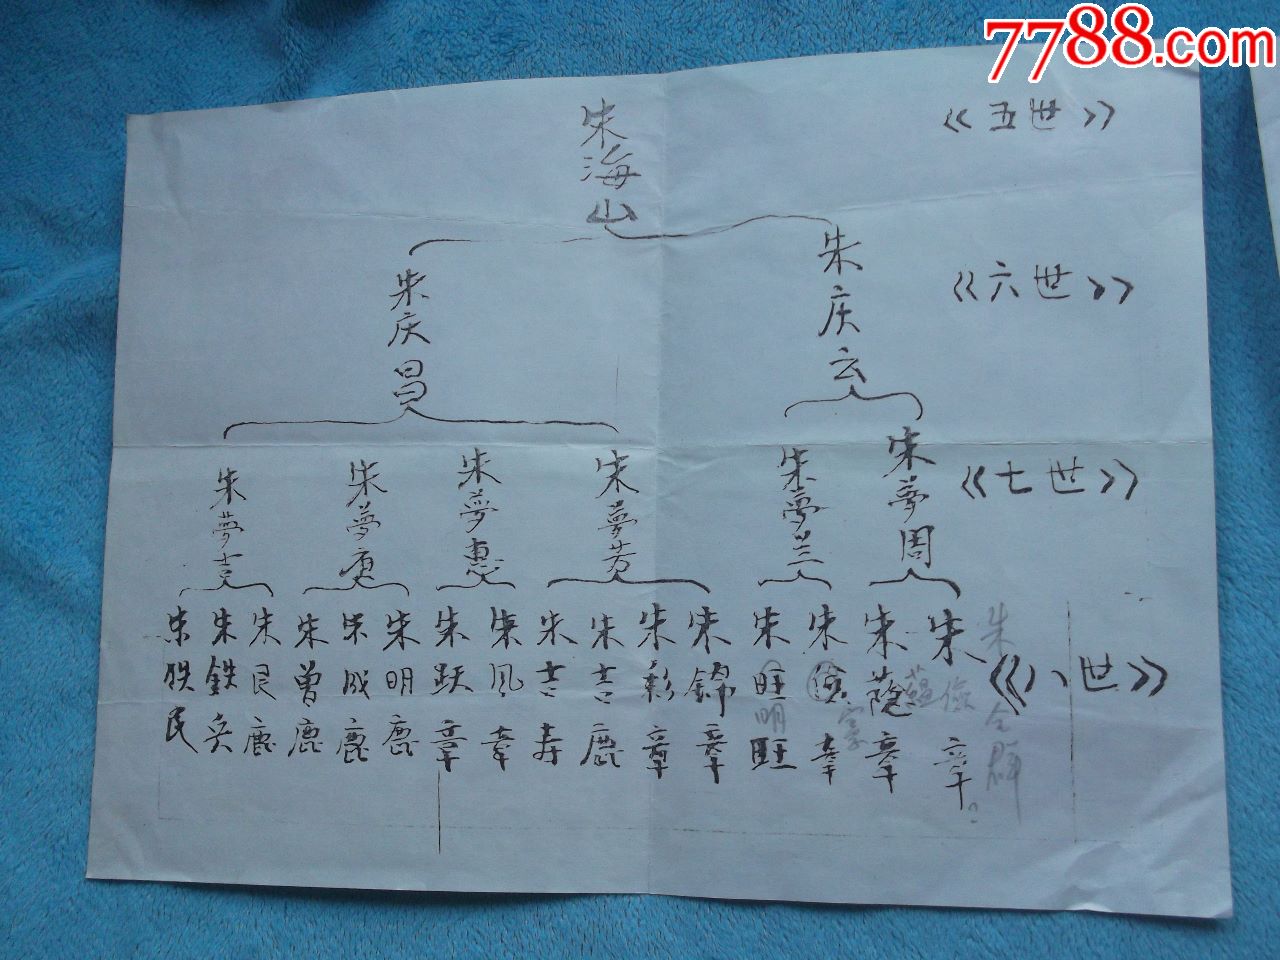 7788.com
朱海山
《五世》
朱庆昌
朱庆云
《六世》
朱夢吉
朱夢庚
朱夢惠
朱夢芳
朱夢兰
朱夢周
《七世》
朱铁民
朱鉄兵
朱艮鹿
朱曾鹿
朱成鹿
朱明鹿
朱跃章
朱凤章
朱吉寿
朱吉鹿
朱彰章
朱錦章
朱旺旺
明
朱俭章
朱蔭章
蕴
朱 章。
俭
朱全群
《八世》